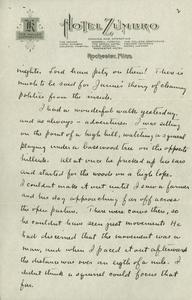 2
HOTEL ZUMBRO
Rochester, Minn.
nights. Lord have pity on them! There is
much to be said for Junius' theory of cleaning
politics from the inside.
I had a wonderful walk yesterday -
and as always - adventures. I was sitting
on the point of a high hill, watching a squirrel
playing under a basswood tree on the opposite
hillside. All at once he pricked up his ears
and started for the woods on a high lope.
I couldn't make it out until I saw a farmer
and his dog approaching far off across
the open pasture. There were cows there, so
he couldn't have seen great movements. He
had discerned that the movement was a
man, and when I paced it out afterward
the distance was over an eighth of a mile. I
didn't think a squirrel could focus that
far.